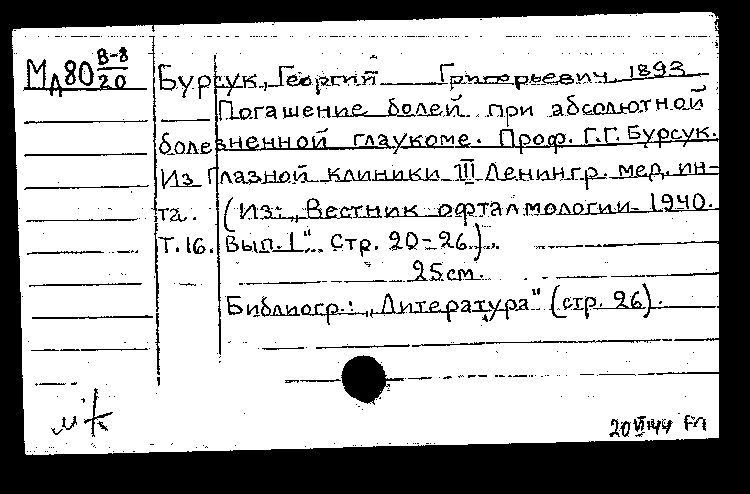 Мд80 В-8/20
Бурсук, Георгий Григорьевич, 1893
Погашение болей при абсолютной
болезненной глаукоме. Проф. Г.Г. Бурсук.
Из Глазной клиники III Ленингр. мед. ин-
та. (Из: „Вестник офталмологии. 1940.
Т.16. Вып. 1". Стр. 20-26).
25см.
Библиогр.: „Литература" (стр. 26).
20 VI 44